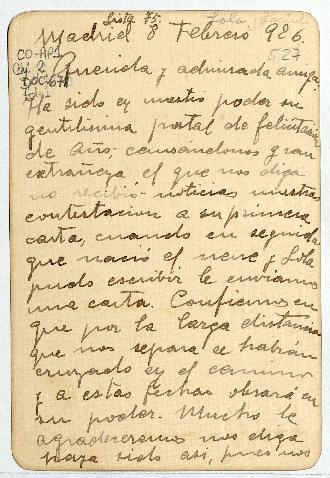 Lista 75.
Madrid 8 Febrero 926.
527
CO-AP1
Querida y admirada amiga:
Ha sido en nuestro poder su
gentilisima postal de felicitacion
de Año; causandonos gran
extrañeza el que nos diga
no recibió noticias nuestras
contestacion a su primera
carta, cuando en seguida
que nació el nene y Lola
pudo escribir le enviamos
una carta. Confiemos en
que por la larga distancia
que nos separa se habrán
cruzado en el camino
y a estas fechas obrará en
su poder. Mucho le
agradeceremos nos diga
haya sido asi, pues nos